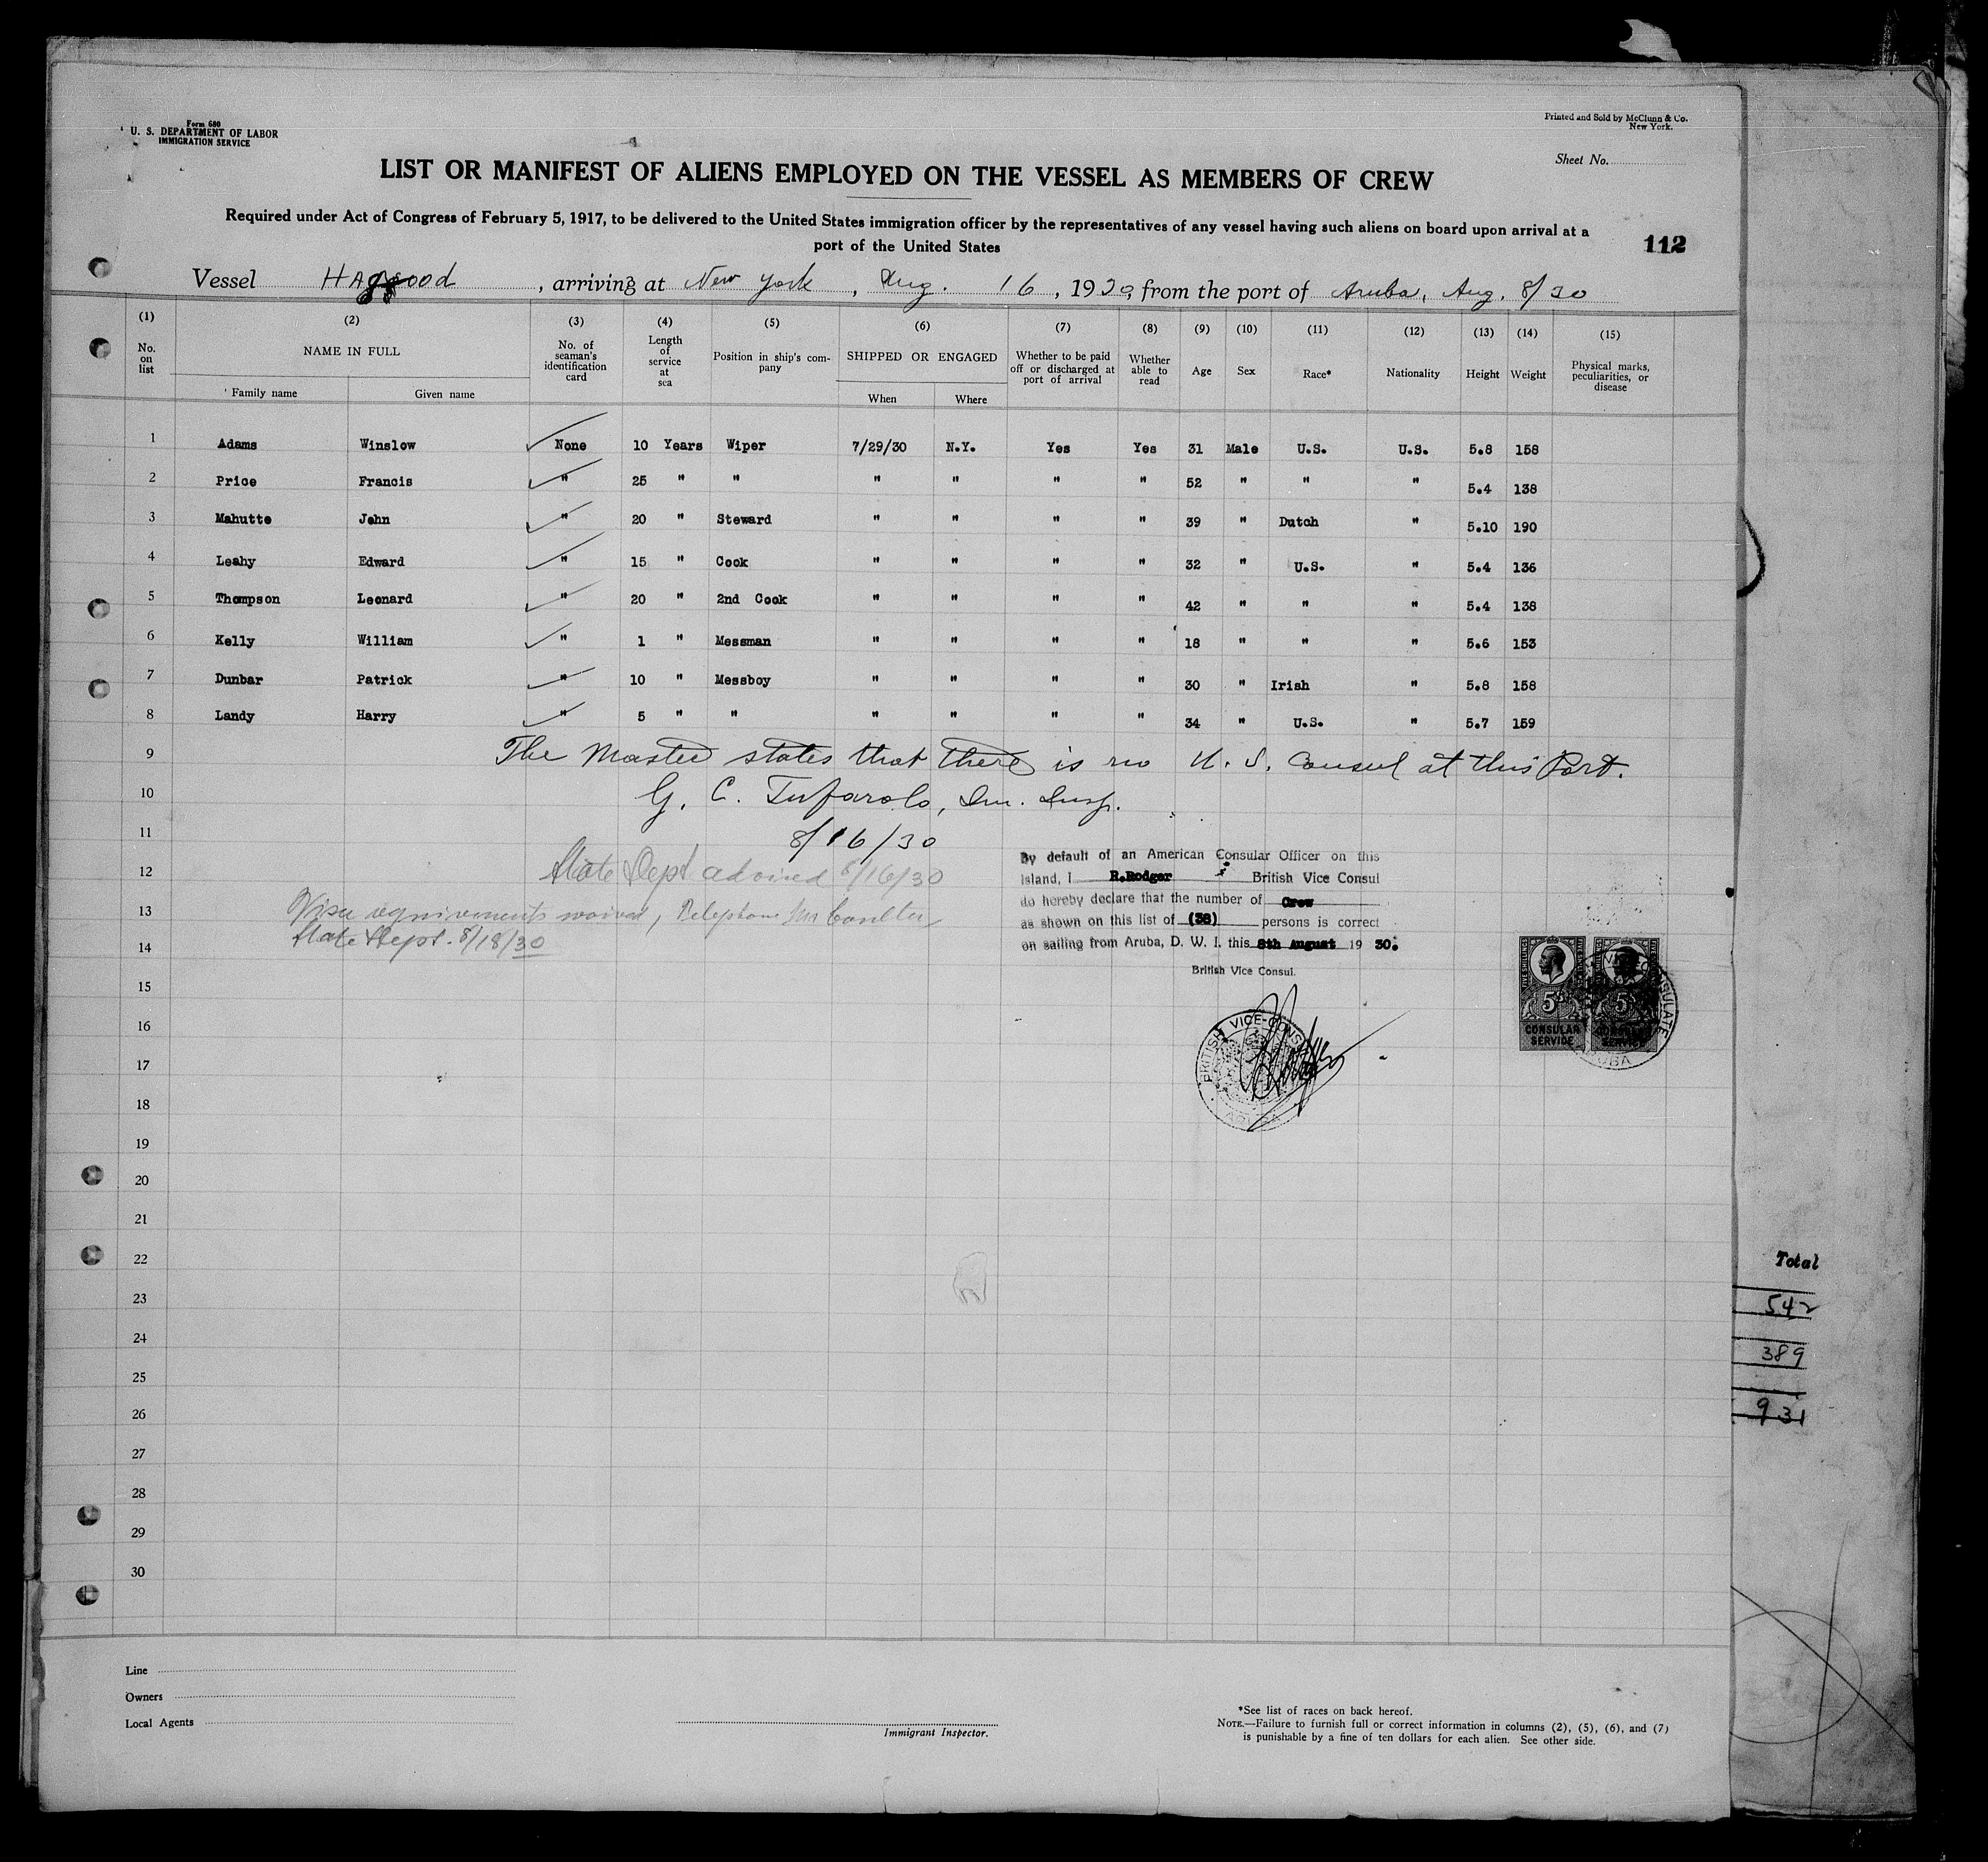 Form 680
U. S. DEPARTMENT OF LABOR
IMMIGRATION SERVICE
Printed and Sold by McClunn & Co.
New York.
Sheet No.
LIST OR MANIFEST OF ALIENS EMPLOYED ON THE VESSEL AS MEMBERS OF CREW
Required under Act of Congress of February 5, 1917, to be delivered to the United States immigration officer by the representatives of any vessel having such aliens on board upon arrival at a
port of the United States
112
Vessel HAgwood, arriving at New York, Aug. 16, 1930, from the port of Aruba, Aug. 8/30
(1) (2) (3) (4) (5) (6) (7) (8) (9) (10) (11) (12) (13) (14) (15)
No. on list NAME IN FULL No. of seaman's identification card Length of service at sea Position in ship's company SHIPPED OR ENGAGED Whether to be paid off or discharged at port of arrival Whether able to read Age Sex Race* Nationality Height Weight Physical marks, peculiarities, or disease
Family name Given name When Where
1 Adams Winslow None 10 Years Wiper 7/29/30 N.Y. Yes Yes 31 Male U.S. U.S. 5.8 158
2 Price Francis " 25 " " " " " " 52 " " " 5.4 138
3 Mahutte John " 20 " Steward " " " " 39 " Dutch " 5.10 190
4 Leahy Edward " 15 " Cook " " " " 32 " U.S. " 5.4 136
5 Thompson Leonard " 20 " 2nd Cook " " " " 42 " " " 5.4 138
6 Kelly William " 1 " Messman " " " " 18 " " " 5.6 153
7 Dunbar Patrick " 10 " Messboy " " " " 30 " Irish " 5.8 158
8 Landy Harry " 5 " " " " " " 34 " U.S. " 5.7 159
9 The Master states that there is no U. S. Consul at this Port.
10 G. C. Tufarolo, Im. Insp.
11 8/16/30
12 State Dept advised 8/16/30
13 Visa requirements waived, Telephone Mr Coulter
14 State Dept. 8/18/30
By default of an American Consular Officer on this
Island, I R.Rodger British Vice Consul
do hereby declare that the number of Crew
as shown on this list of (38) persons is correct
on sailing from Aruba, D. W. I. this 8th August 19 30.
British Vice Consul.
BRITISH VICE-CONSULATE
ARUBA
5s 5s
CONSULAR SERVICE
CONSULAR SERVICE
VICE CONSULATE
ARUBA
15
16
17
18
19
20
21
22
23
24
25
26
27
28
29
30
Total
542
389
931
Line
Owners
Local Agents
Immigrant Inspector.
*See list of races on back hereof.
NOTE.—Failure to furnish full or correct information in columns (2), (5), (6), and (7)
is punishable by a fine of ten dollars for each alien. See other side.